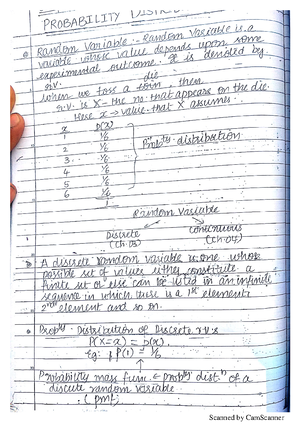 PROBABILITY DISTRI
Random Variable :- Random Variable is a
variable whose value depends upon some
experimental outcome. It is denoted by
r.v.
die
When we toss a coin, then
r.v. is X - the no. that appears on the die.
Here x → value that X assumes.
x p(x)
1 1/6
2 1/6
3 1/6 Prob^ty distribution
4 1/6
5 1/6
6 1/6
1
Random Variable
Discrete Continuous
(Ch-03) (Ch-04)
A discrete random variable is one whose
possible set of values either constitute a
finite set or else can be listed in an infinite
sequence in which there is a 1st element,
2nd element and so on.
Prob^ty - Distribution of Discrete r.v.s
P(X=x) = p(x).
eg: P(1) = 1/6
Probability mass func. ← prob^ty dist.^n of a
discrete random variable
(pmf)
Scanned by CamScanner